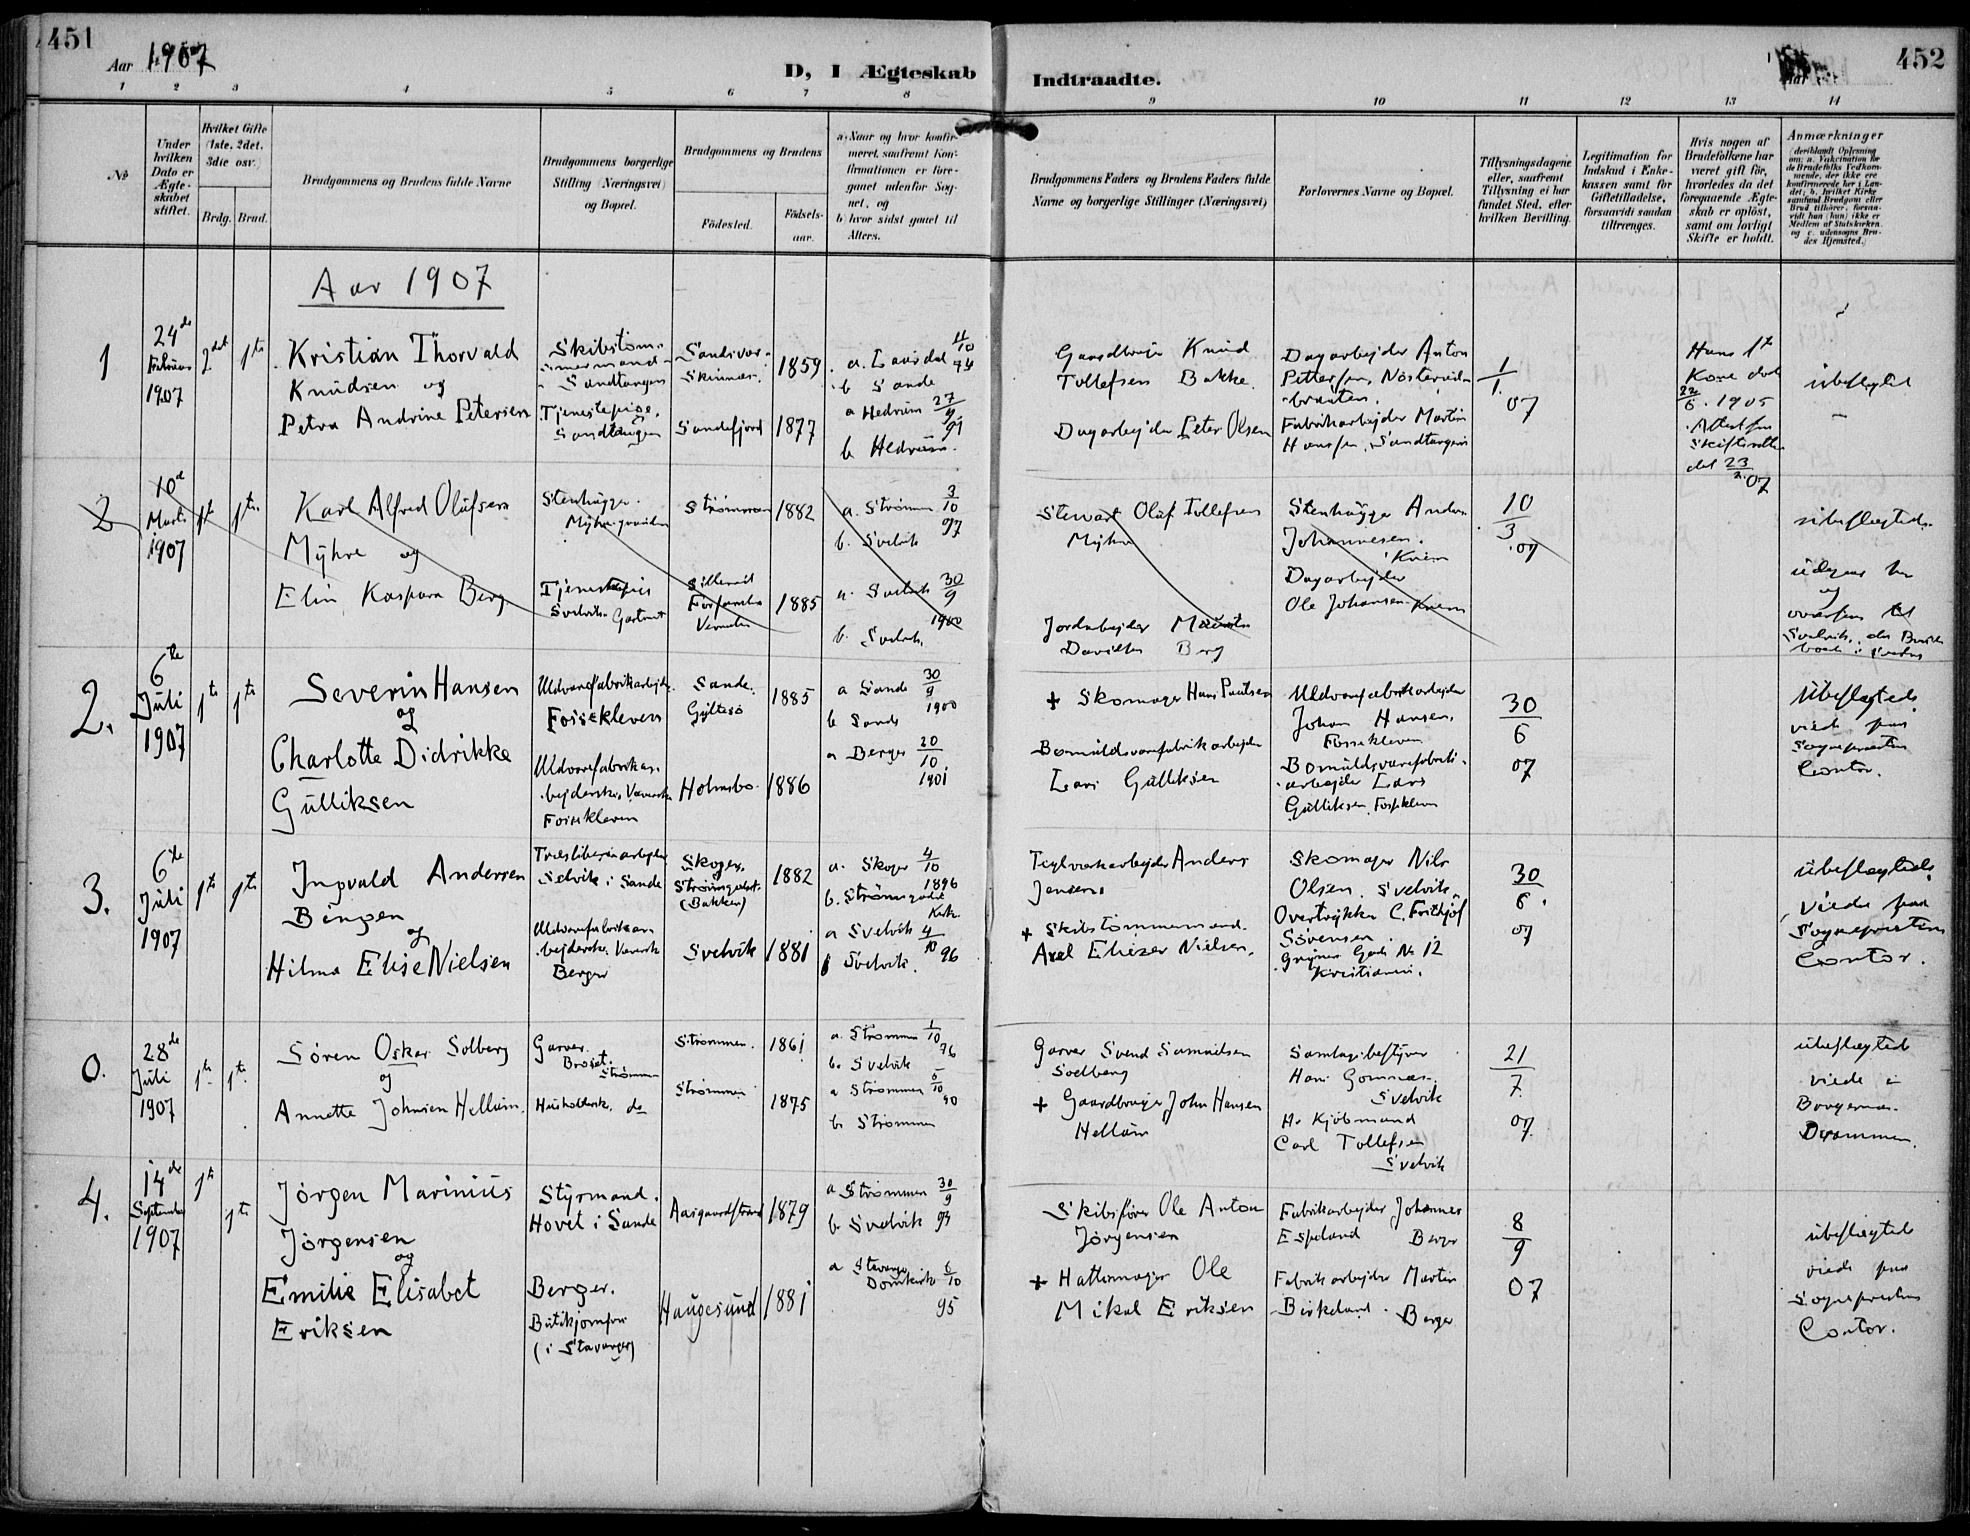 451
Aar 1907
D, I Ægteskab
Indtraadte.
452
1
2
3
4
5
6
7
8
9
10
11
12
13
14
No
Under
hvilken
Dato er
Ægte-
skabet
stiftet.
Hvilket Gifte
(1ste, 2det,
3die osv.)
Brdg.
Brud.
Brudgommens og Brudens fulde Navne
Brudgommens borgerlige
Stilling (Næringsvei)
og Bopæl.
Brudgommens og Brudens
Fødested.
Fødsels-
aar.
a) Naar og hvor konfir-
meret, saafremt Kon-
firmationen er fore-
gaaet udenfor Sog-
net, og
b) hvor sidst gaaet til
Alters.
Brudgommens Faders og Brudens Faders fulde
Navne og borgerlige Stillinger (Næringsvei)
Forlovernes Navne og Bopæl.
Tillysningsdagene
eller, saafremt
Tillysning ei har
fundet Sted, efter
hvilken Bevilling.
Legitimation for
Indskud i Enke-
kassen samt for
Giftetilladelse,
forsaavidt saadan
tiltrænges.
Hvis nogen af
Brudefolkene har
været gift før,
hvorledes da det
foregaaende Ægte-
skab er opløst,
samt om lovligt
Skifte er holdt.
Anmærkninger
(deriblandt Oplysning
om: a. Vakcination for
de Brudefolks Vedkom-
mende, der ikke ere
konfirmerede her i Lan-
det; b. hvilket Kirke-
samfund Brudgom eller
Brud tilhører, forsaa-
vidt han (hun) ikke er
Medlem af Statskirken,
og c. udensogns Bru-
des Hjemsted.)
Aar 1907
1
24de
Februar
1907
2det
1te
Kristian Thorvald
Knudsen og
Petra Andrine Petersen
Skibstøm-
mermand
Sandtangen
Tjenestepige,
Sandtangen
Sandsvær
Sandefjord
1859
1877
a. Laurdal 4/10 74
b Sande
a Hedrum 27/9 91
b Hedrum.
Gaardbruger Knud
Tollefsen Bakke.
Dagarbejder Peter Olsen
Dagarbejder Anton
Pettersen, Nøstervids
braaten.
Fabrikarbejder Martin
Hansen, Sandtangen
1/1 07
Hans 1te
Kone død
22/6 1905
Attest fra
Skifteretten
det 23/2 07
ubeslægted
2
10de
Marts
1907
1te
1te
Karl Alfred Olufsen
Myhre og
Elin Kaspara Berg
Stenhugger
Tjenestepige
Svelvik
Strømmen
1882
1885
a. Strømm 3/10 97
b. Svelvik
a. Svelvik 30/9 1900
b. Svelvik.
Stewart Oluf Tollefsen
Myhre
Jordarbejder
Davidsen Berg
Stenhugger Anders
Johannesen.
Dagarbejder
Ole Johansen
10/3 07
ubeslægtede
og
Svelvik, da
2.
6te
Juli
1907
1te
1te
Severin Hansen
og
Charlotte Didrikke
Gulliksen
Uldvarefabrikarbejder
Fossekleven
Uldvarefabrikar-
bejderske, Væverske
Fossekleven
Sande.
Holmsbo
1885
1886
a Sande 30/9 1900
b Sande
a Berger 20/10 1901
+ Skomager Hans Paulsen
Bomuldsvarefabrikarbejder
Lars Gulliksen
Uldvarefabrikarbejder
Johan Hansen,
Fossekleven
Bomuldsvarefabrik-
arbejder Lars
Gulliksen, Fossekleven
30/6 07
Ubeslægted
viede paa
Sognepræstens
Contor.
3.
6te
Juli
1907
1te
1te
Ingvald Andersen
Bingen
og
Hilma Elise Nielsen
Træsliberiarbejder
Selvik i Sande
Uldvarefabrikar-
bejderske, Væversk
Berger
Skoger,
Strømsgodset.
(Bakken)
Svelvik
1882
1881
a. Skoger 4/10 1896
b. Strømsgodset
Kirke.
a Svelvik 4/10 96
b Svelvik.
Teglværkarbejder Anders
Jensen
+ Skibstømmermand
Axel Eliezer Nielsen.
Skomager Nils
Olsen, Svelvik
Overtrykker C. Frithjof
Sørensen
Grejner Gade No 12
Kristiania.
30/6 07
ubeslægtede
Viede paa
Sognepræstens
Contor.
0.
28de
Juli
1907
1te
1te
Søren Oskar Solberg
og
Annette Johnsen Hellum.
Garver.
Strømm
Husholdersk. do
Strømmen.
Strømmen
1861
1875
a. Strømmen 1/10 76
b. Svelvik
a Strømmen 5/10 90
b. Strømmen
Garver Svend Samuelsen
Soelberg
+ Gaardbruger John Hansen
Hellum
Samlagsbestyrer
Svelvik
Hr. Kjøbmand
Carl Tollefsen
Svelvik
21/7 07
ubeslægted
viede i
Bragernæs
Drammen.
4.
14de
September
1907
1te
1te
Jørgen Marinius
Jørgensen
og
Emilie Elisabet
Eriksen
Styrmand.
Hovet i Sande
Berger.
Butikjomfru
(i Stavanger)
Aasgaardstrand
Haugesund
1879
1881
a Strømmen 30/9 94
b. Svelvik
a Stavanger
Domkirke 6/10 95
Skibsfører Ole Anton
Jørgensen
+ Hattemager Ole
Mikal Eriksen
Fabrikarbejder Johannes
Espeland Berger
Fabrikarbejder Martin
Birkeland. Berger
8/9 07
ubeslægted
viede paa
Sognepræstens
Contor.